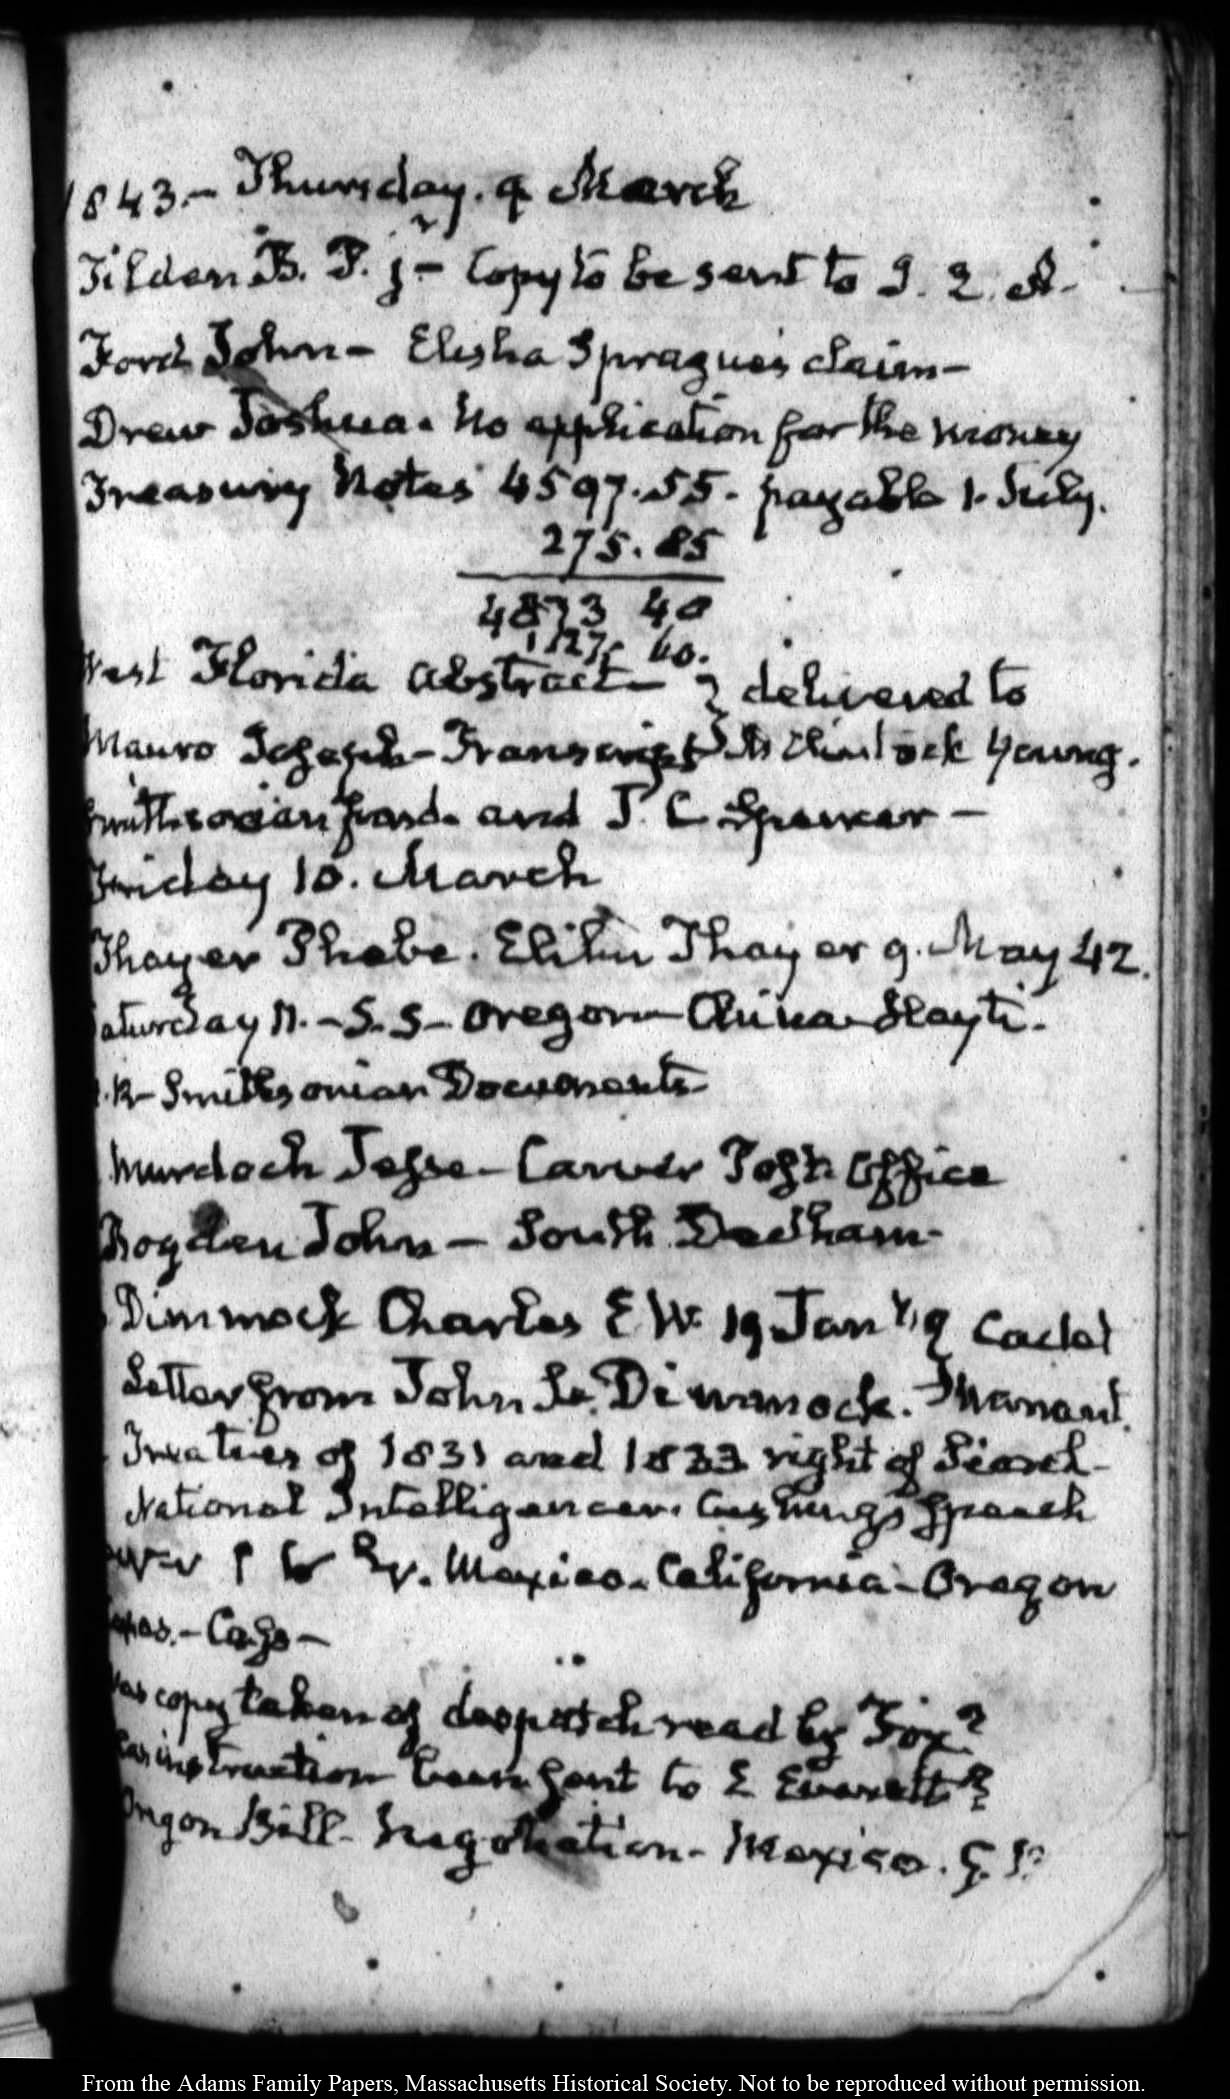 1843.- Thursday. 9 March
Tilden B. P. j - Copy to be sent to J. Q. A.
Ford John - Elisha Sprague's claim -
Drew Joshua. No application for the money
Treasury Notes 4597.55. payable 1. July.
275.85
4873 40
1127 60.
West Florida abstract - } delivered to
Mauro Joseph - Transcript } McClintock Young.
Smithsonian fund. and J. C Spencer -
Friday 10. March
Thayer Phebe. Elihu Thayer 9. May 42.
Saturday 11. - S. S - Oregon - China - Hayti -
Smithsonian Documents
Murdoch Jesse - Carver Post Office
Bogden John - South Dedham -
Dimmock Charles E W. 19 Jany. Cadet
Letter from John L. Dimmock.
Treaties of 1831 and 1833 right of Search -
National Intelligencer. Cushings Speech
Mexico - California - Oregon
Texas. - Cass -
Was copy taken of despatch read by Fox?
Has instruction been sent to E Everett?
Oregon Bill - Negotiation - Mexico.
From the Adams Family Papers, Massachusetts Historical Society. Not to be reproduced without permission.